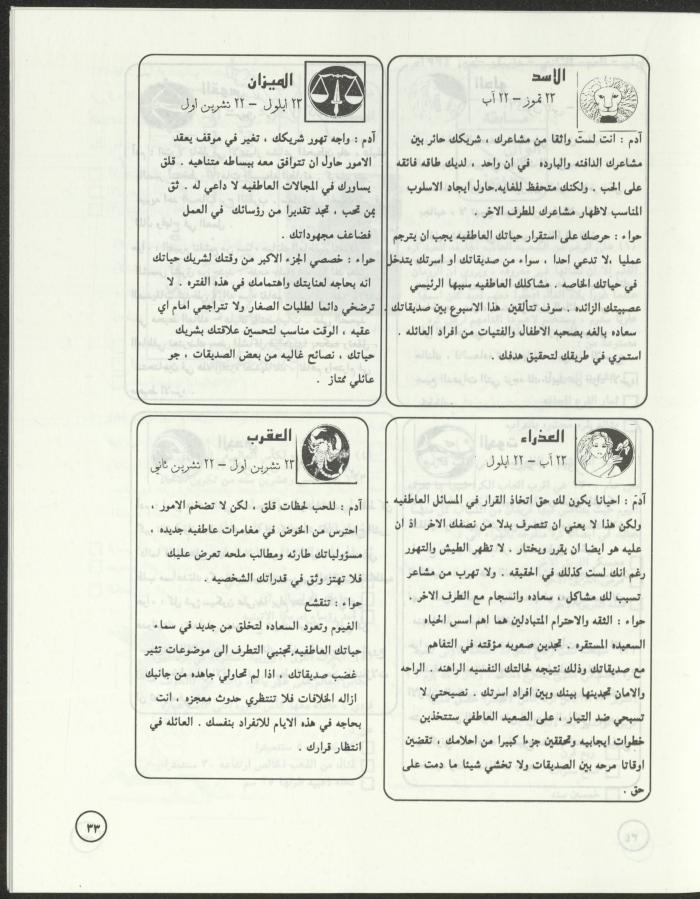 الاسد
٢٣ تموز - ٢٢ آب
آدم : انت لست واثقا من مشاعرك ، شريكك حائر بين
مشاعرك الدافئه والبارده في ان واحد ، لديك طاقه فائقه
على الحب . ولكنك متحفظ للغايه.حاول ايجاد الاسلوب
المناسب لاظهار مشاعرك للطرف الاخر .
حواء : حرصك على استقرار حياتك العاطفيه يجب ان يترجم
عمليا ،لا تدعي احدا ، سواء من صديقاتك او اسرتك يتدخل
في حياتك الخاصه . مشاكلك العاطفيه سببها الرئيسي
عصبيتك الزائده . سوف تتألقين هذا الاسبوع بين صديقاتك .
سعاده بالغه بصحبه الاطفال والفتيات من افراد العائله .
استمري في طريقك لتحقيق هدفك .
الميزان
٢٣ ايلول - ٢٢ تشرين اول
آدم : واجه تهور شريكك ، تغير في موقف يعقد
الامور حاول ان تتوافق معه ببساطه متناهيه . قلق
يساورك في المجالات العاطفيه لا داعي له . ثق
بمن تحب ، تجد تقديرا من رؤسائك في العمل
فضاعف مجهوداتك .
حواء : خصصي الجزء الاكبر من وقتك لشريك حياتك
انه بحاجه لعنايتك واهتمامك في هذه الفتره . لا
ترضخي دائما لطلبات الصغار ولا تتراجعي امام اي
عقبه ، الوقت مناسب لتحسين علاقتك بشريك
حياتك ، نصائح غاليه من بعض الصديقات ، جو
عائلي ممتاز .
العذراء
٢٣ آب - ٢٢ ايلول
آدم : احيانا يكون لك حق اتخاذ القرار في المسائل العاطفيه .
ولكن هذا لا يعني ان تتصرف بدلا من نصفك الاخر اذ ان
عليه هو ايضا ان يقرر ويختار . لا تظهر الطيش والتهور
رغم انك لست كذلك في الحقيقه . ولا تهرب من مشاعر
تسبب لك مشاكل ، سعاده وانسجام مع الطرف الاخر .
حواء : الثقه والاحترام المتبادلين هما اهم اسس الحياه
السعيده المستقره . تجدين صعوبه مؤقته في التفاهم
مع صديقاتك وذلك نتيجه لحالتك النفسيه الراهنه . الراحه
والامان تجدينها بينك وبين افراد اسرتك . نصيحتي لا
تسبحي ضد التيار ، على الصعيد العاطفي ستتخذين
خطوات ايجابيه وتحققين جزءا كبيرا من احلامك ، تقضين
اوقاتا مرحه بين الصديقات ولا تخشي شيئا ما دمت على
حق .
العقرب
٢٣ تشرين اول - ٢٢ تشرين ثاني
آدم : للحب لحظات قلق ، لكن لا تضخم الامور ،
احترس من الخوض في مغامرات عاطفيه جديده ،
مسؤولياتك طارئه ومطالب ملحه تعرض عليك
فلا تهتز وثق في قدراتك الشخصيه .
حواء : تنقشع
الغيوم وتعود السعاده لتخلق من جديد في سماء
حياتك العاطفيه.تجنبي التطرف الى موضوعات تثير
غضب صديقاتك ، اذا لم تحاولي جاهده من جانبك
ازاله الخلافات فلا تنتظري حدوث معجزه ، انت
بحاجه في هذه الايام للانفراد بنفسك . العائله في
انتظار قرارك .
٣٣